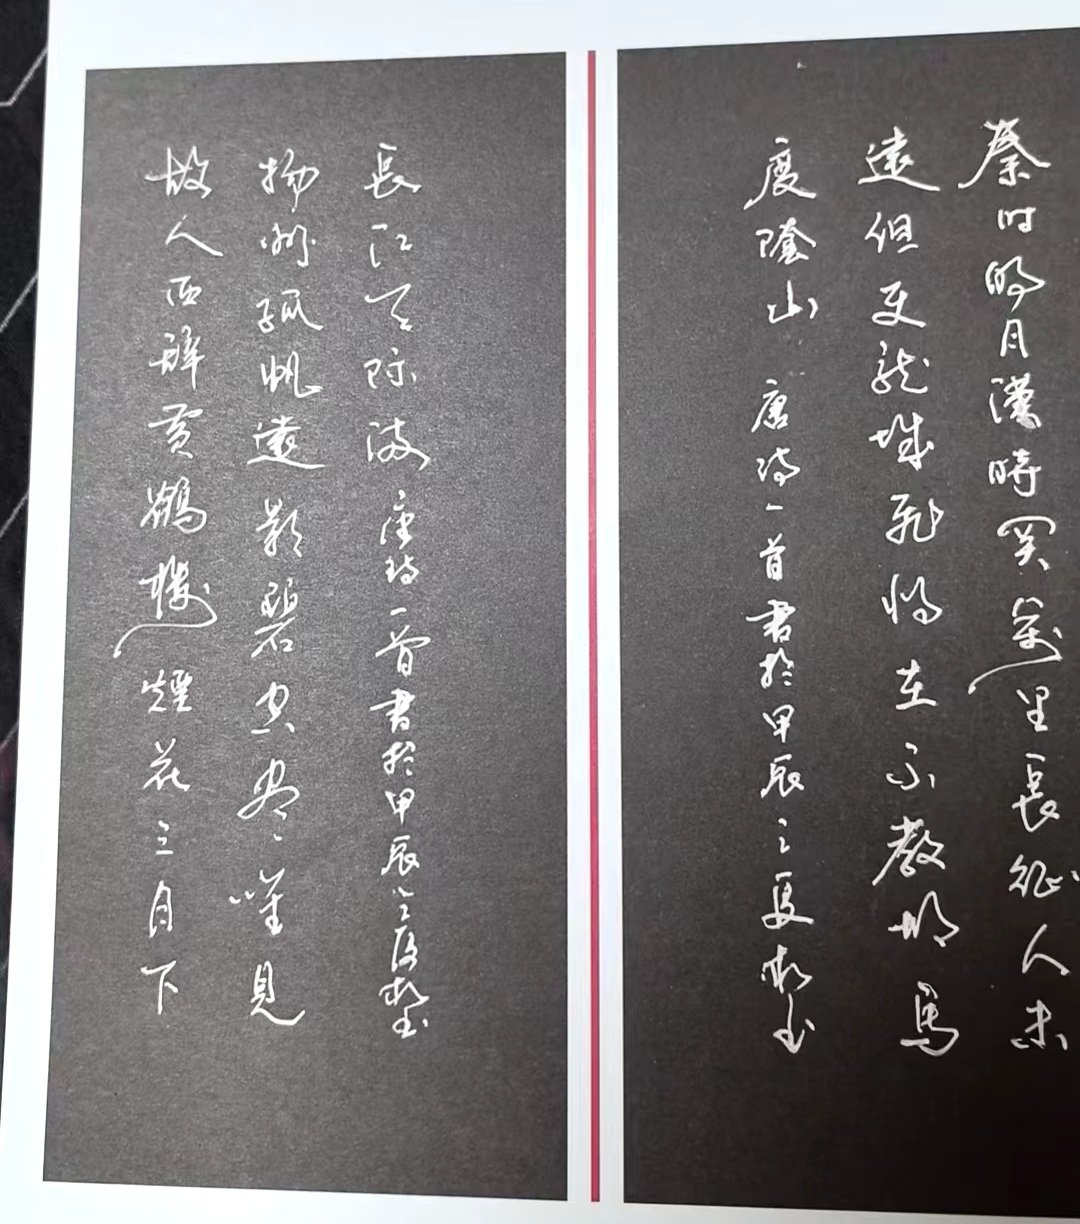 秦时明月漢時関萬里長征人未
還但使龍城飛将在不教胡馬
度陰山 唐詩一首書於甲辰之夏
故人西辞黄鶴樓煙花三月下
揚州孤帆遠影碧空尽唯見
長江天際流 唐詩一首書於甲辰之夏